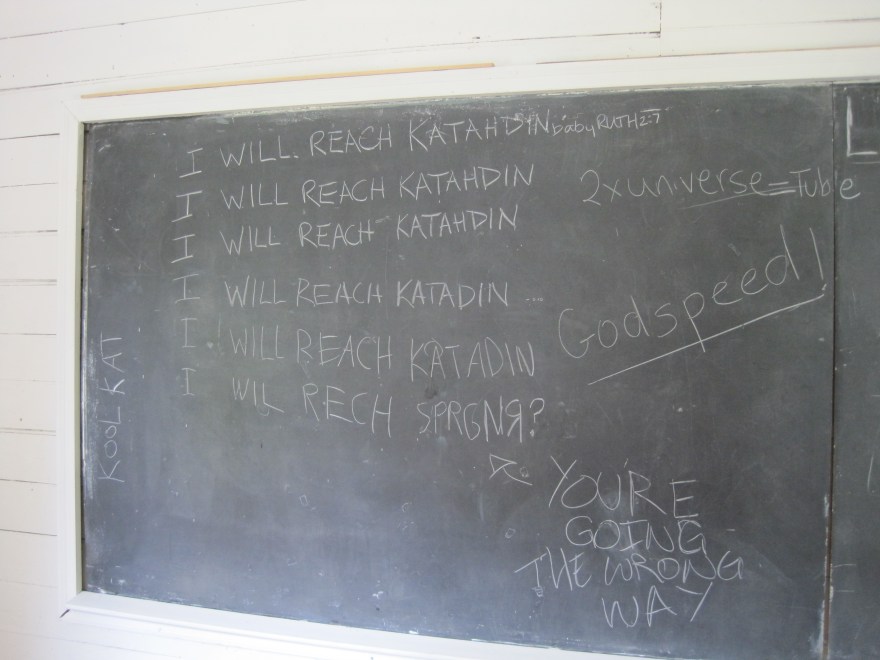 I WILL. REACH KATAHDIN babyRUTH2:7
I WILL REACH KATAHDIN
I WILL REACH KATAHDIN
I WILL REACH KATADIN ....
I WILL REACH KATADIN
I WIL RECH SPRGNЯ?
2xuniverse=Tube
Godspeed!
KOOL KAT
YOU'RE
GOING
THE WRONG
WAY